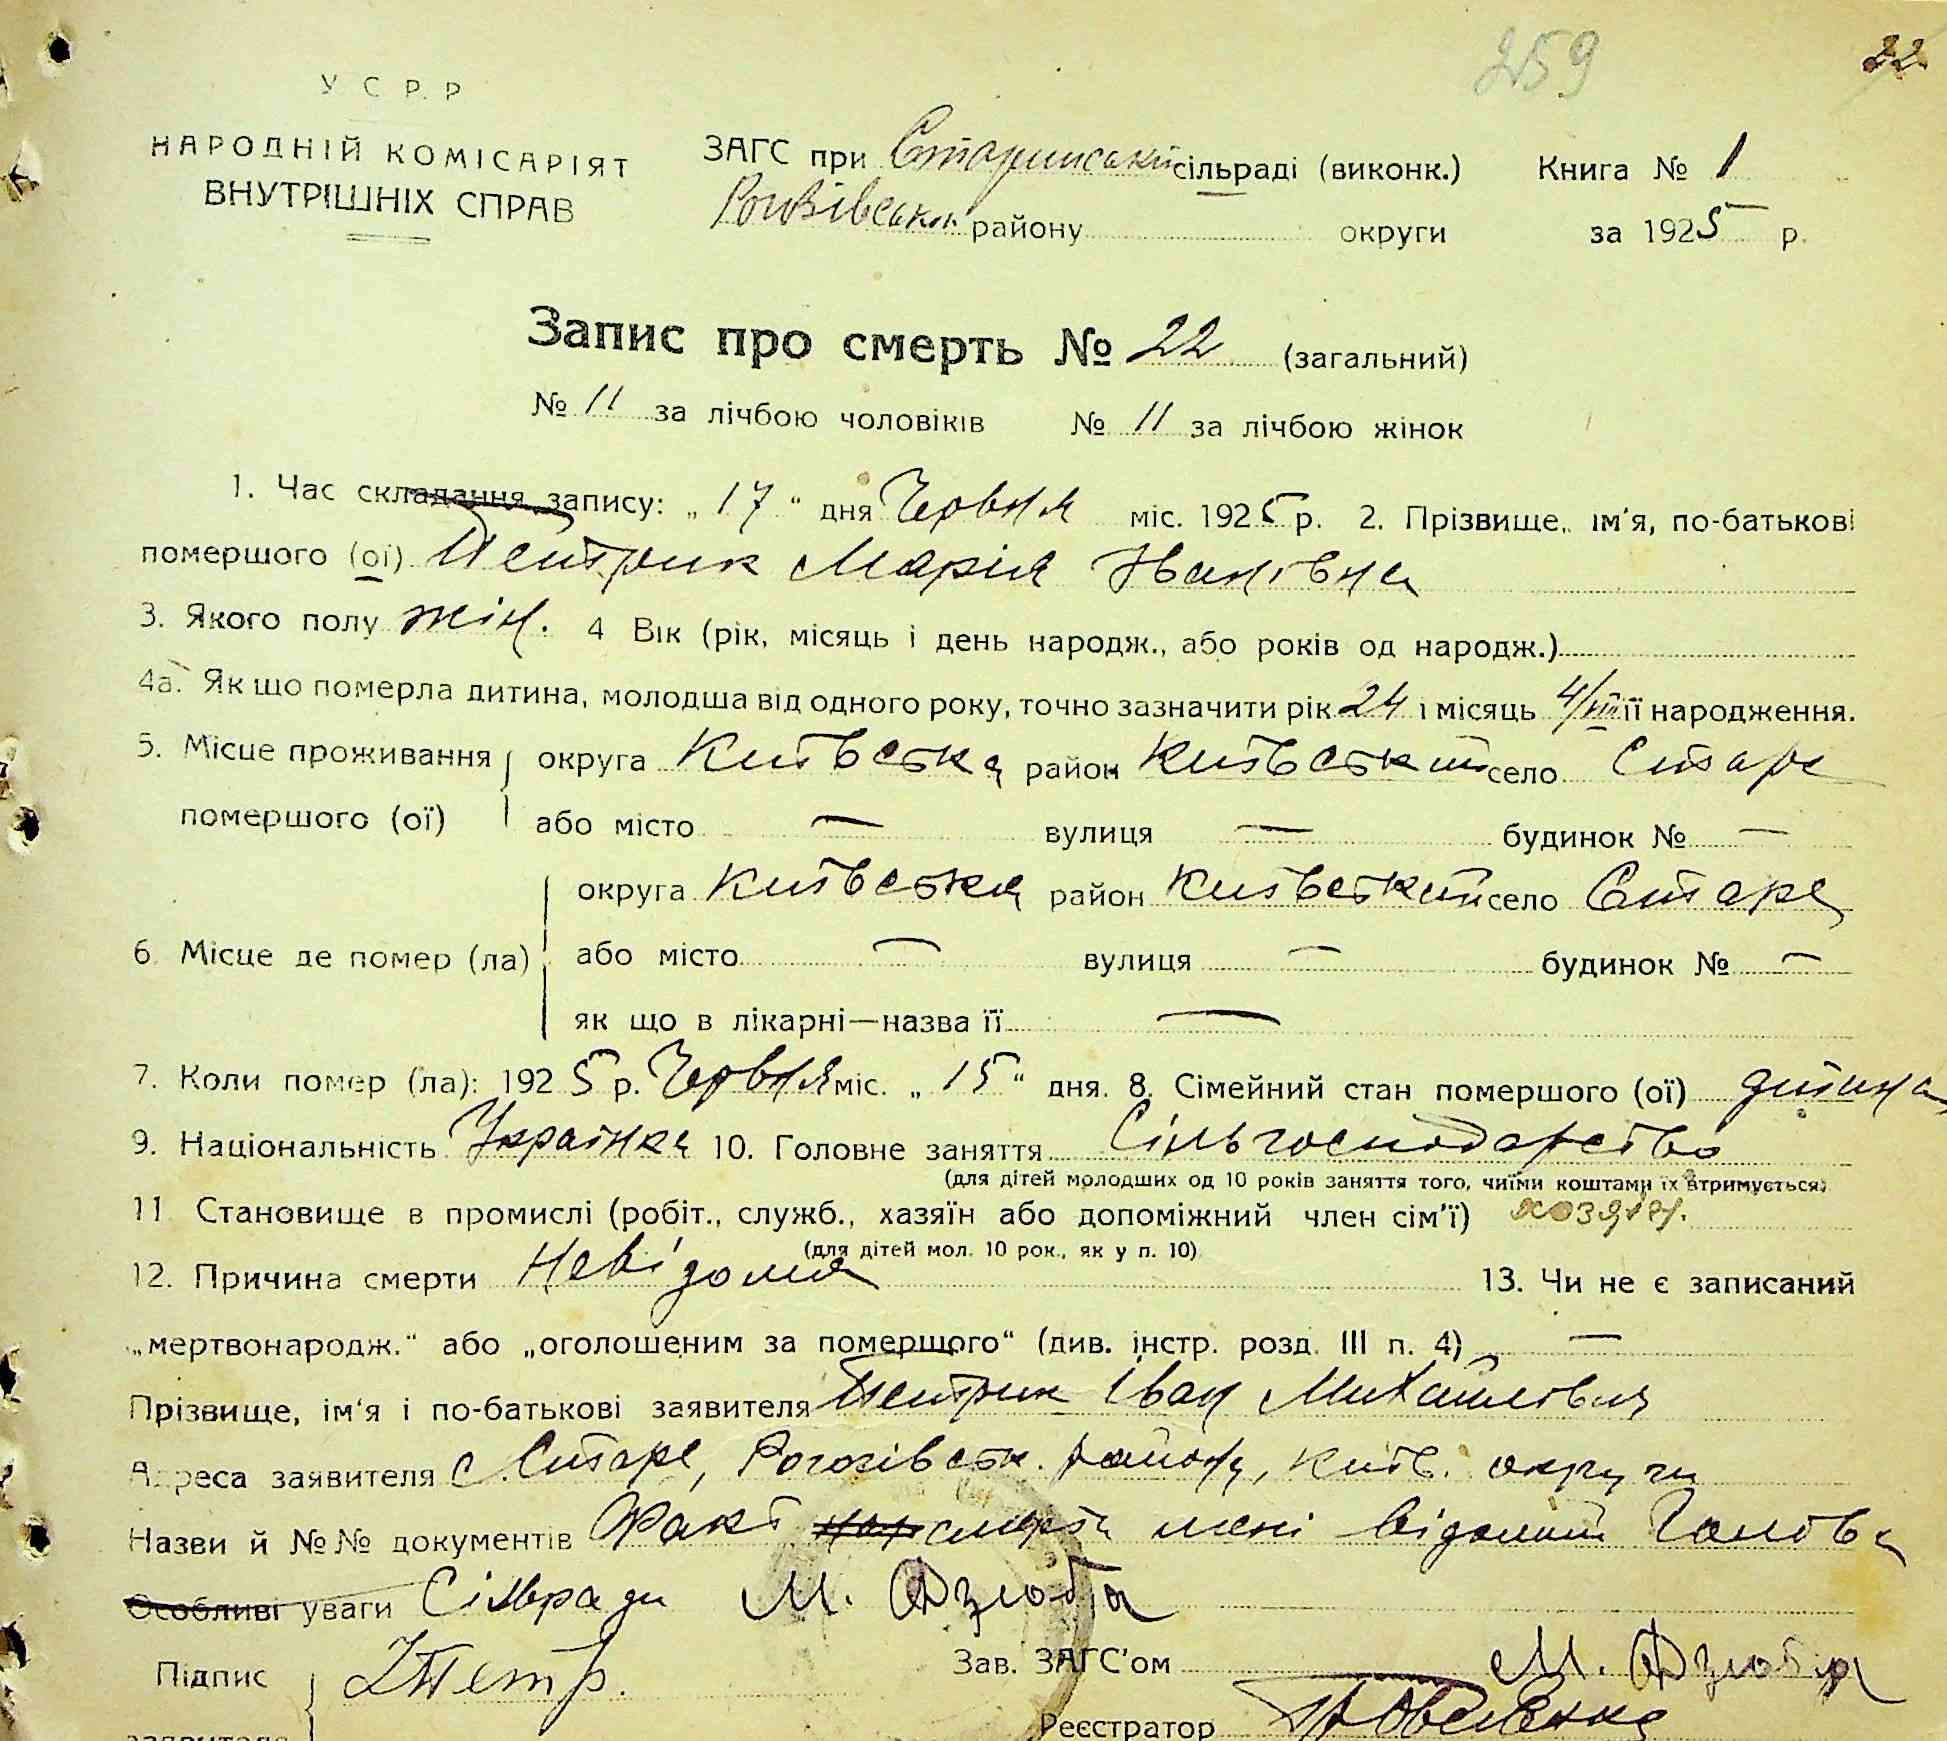 259
22
У С Р Р
НАРОДНІЙ КОМІСАРІЯТ
ВНУТРІШНІХ СПРАВ
ЗАГС при Старинській сільраді (виконк.) Книга № 1
району округи за 1925 р.
Запис про смерть № 22 (загальний)
№ 11 за лічбою чоловіків № 11 за лічбою жінок
1. Час складання запису: „17“ дня Червня міс. 1925 р. 2. Прізвище, ім'я, по-батькові
помершого (ої) Петрик Марія Іванівна
3. Якого полу жін. 4 Вік (рік, місяць і день народж., або років од народж.)
4а. Як що померла дитина, молодша від одного року, точно зазначити рік 24 і місяць 4/VIII її народження.
5. Місце проживання округа Київська район Київський село Старе
помершого (ої) або місто — вулиця — будинок № —
округа Київська район Київський село Старе
6 Місце де помер (ла) або місто — вулиця — будинок № —
як що в лікарні—назва її —
7. Коли помер (ла): 1925 р. Червня міс. „15“ дня. 8. Сімейний стан помершого (ої) дитина
9. Національність Українка 10. Головне заняття Сільгосподарство
(для дітей молодших од 10 років заняття того, чиїми коштами їх втримується)
11 Становище в промислі (робіт., служб., хазяїн або допоміжний член сім'ї) хозяін.
(для дітей мол. 10 рок., як у п. 10)
12. Причина смерти Невідома 13. Чи не є записаний
„мертвонародж.“ або „оголошеним за помершого“ (див. інстр. розд. III п. 4) —
Прізвище, ім'я і по-батькові заявителя Петрик Іван Михайлович
Адреса заявителя с. Старе, Рогозівськ. району, Київ. округи
Назви й №№ документів Факт смерти мені відомий Голова
Особливі уваги Сільради М. Дзюба
Підпис І Петр. Зав. ЗАГС'ом М. Дзюба
заявителя Реєстратор